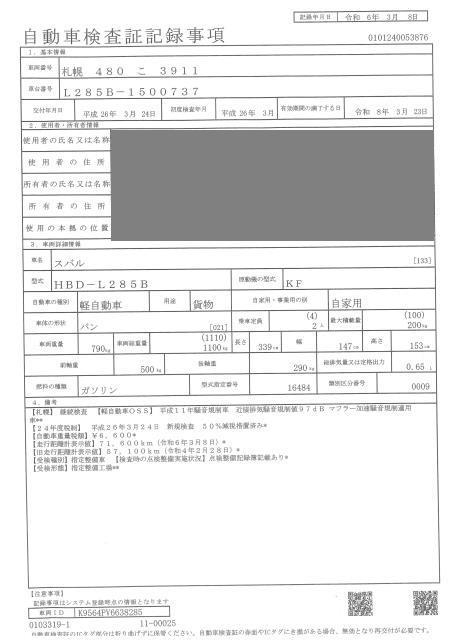 記録年月日 令和 6年 3月 8日
自動車検査証記録事項 0101240053876
1. 基本情報
車両番号 札幌 480 こ 3911
車台番号 L285B-1500737
交付年月日 平成 26年 3月 24日 初度検査年月 平成 26年 3月 有効期間の満了する日 令和 8年 3月 23日
2. 使用者・所有者情報
使用者の氏名又は名称
使用者の住所
所有者の氏名又は名称
所有者の住所
使用の本拠の位置
3. 車両詳細情報
車名 スバル [133]
型式 HBD-L285B 原動機の型式 KF
自動車の種別 軽自動車 用途 貨物 自家用・事業用の別 自家用
車体の形状 バン [021] 乗車定員 (4) 2人 最大積載量 (100) 200kg
車両重量 790kg 車両総重量 (1110) 1100kg 長さ 339cm 幅 147cm 高さ 153cm
前軸重 500kg 後軸重 290kg 総排気量又は定格出力 0.65 L
燃料の種類 ガソリン 型式指定番号 16484 類別区分番号 0009
4. 備考
【札幌】 継続検査 【軽自動車OSS】 平成11年騒音規制車 近接排気騒音規制値97dB マフラー加速騒音規制適用
車**
【24年度税制】 平成26年3月24日 新規検査 50%減税措置済み*
【自動車重量税額】¥6,600*
【走行距離計表示値】71,600km(令和6年3月8日)*
【旧走行距離計表示値】57,100km(令和4年2月28日)*
【受検種別】指定整備車 【検査時の点検整備実施状況】点検整備記録簿記載あり*
【受検形態】指定整備工場**
【注意事項】
記録事項はシステム登録時点の情報となります
車両ID K9564PV6638285
0103319-1 11-00025
自動車検査証のICタグ部分は折り曲げずに保管ください。自動車検査証の券面やICタグにき損がある場合、無効となり再交付が必要です。